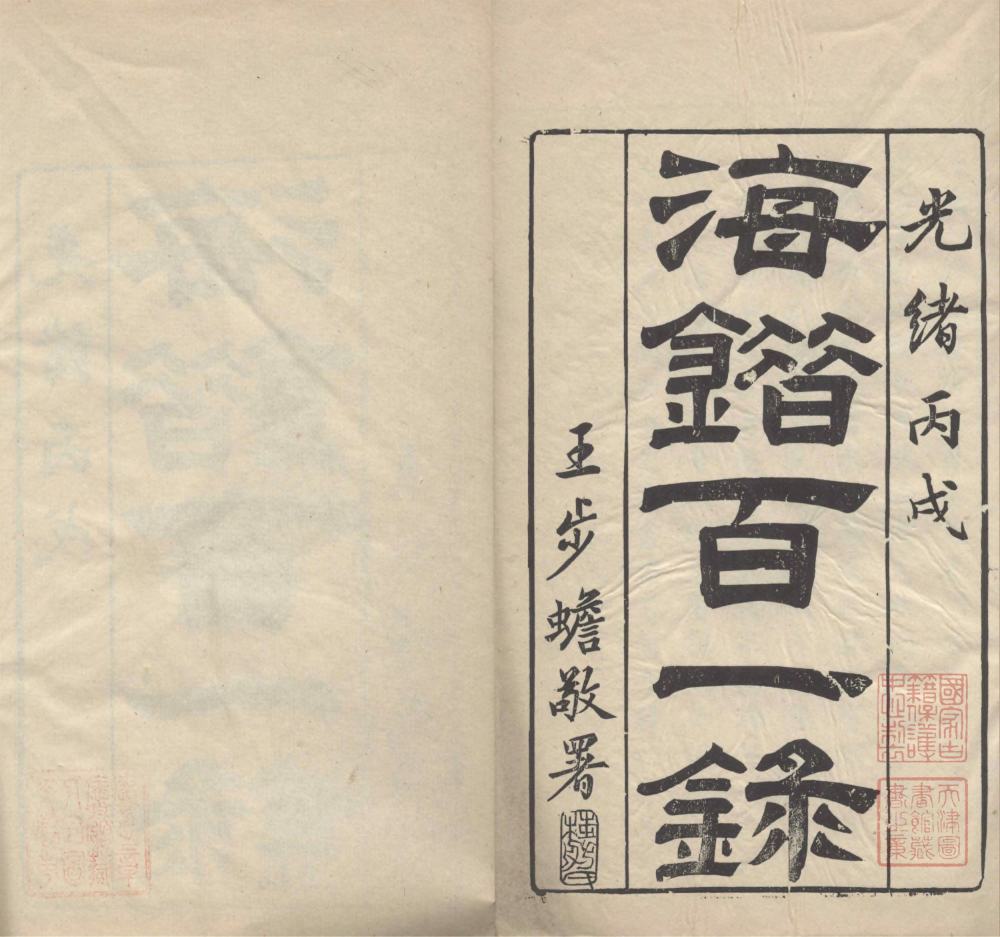 光緒丙戌
海錯百一錄
王步蟾敬署
國家古
籍保護
天津圖
書館藏
書之章